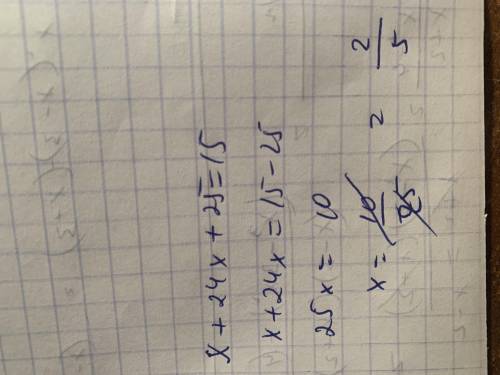 x + 24x + 25 = 15
x + 24x = 15 - 25
25x = 10
x = 10/25 2 2/5